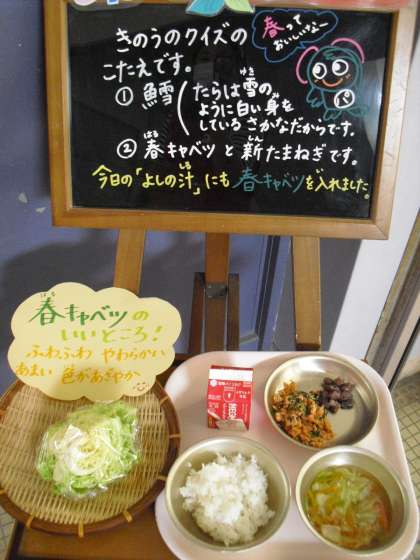 春って
おいしいなー
きのうのクイズの
こたえです。
① 鱈 たらは雪のように白い身をしているさかなだからです。
② 春キャベツと新たまねぎです。
今日の「よしの汁」にも春キャベツを入れました。
春キャベツの
いいところ!
ふわふわ やわらかい
あまい 色があざやか